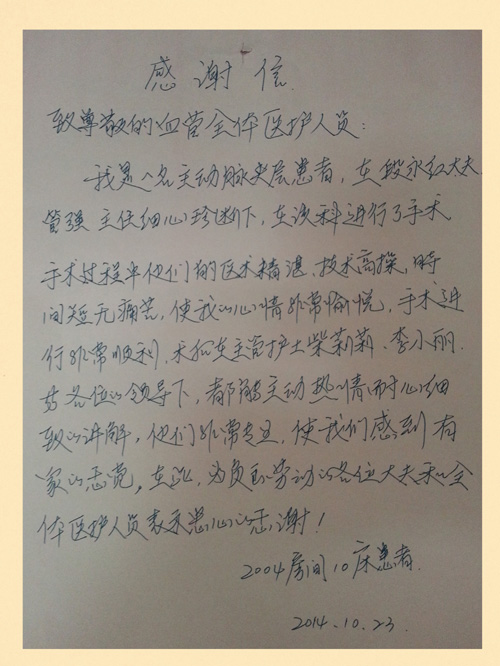 感谢信
致尊敬的血管全体医护人员：
我是一名主动脉夹层患者，在段永红大夫
管强 主任细心珍断下，在该科进行了手术
手术过程中他们的医术精湛，技术高操，时
间短无痛苦，使我的心情非常愉悦，手术进
行非常顺利，术后在主管护士柴莉莉、李小丽
各位的领导下，都能主动热情耐心细
致的讲解，他们非常专业，使我们感到有
家的感觉，在此，为负的劳动的各位大夫和全
体医护人员表示忠心的感谢！
2004房间10床患者
2014.10.23.